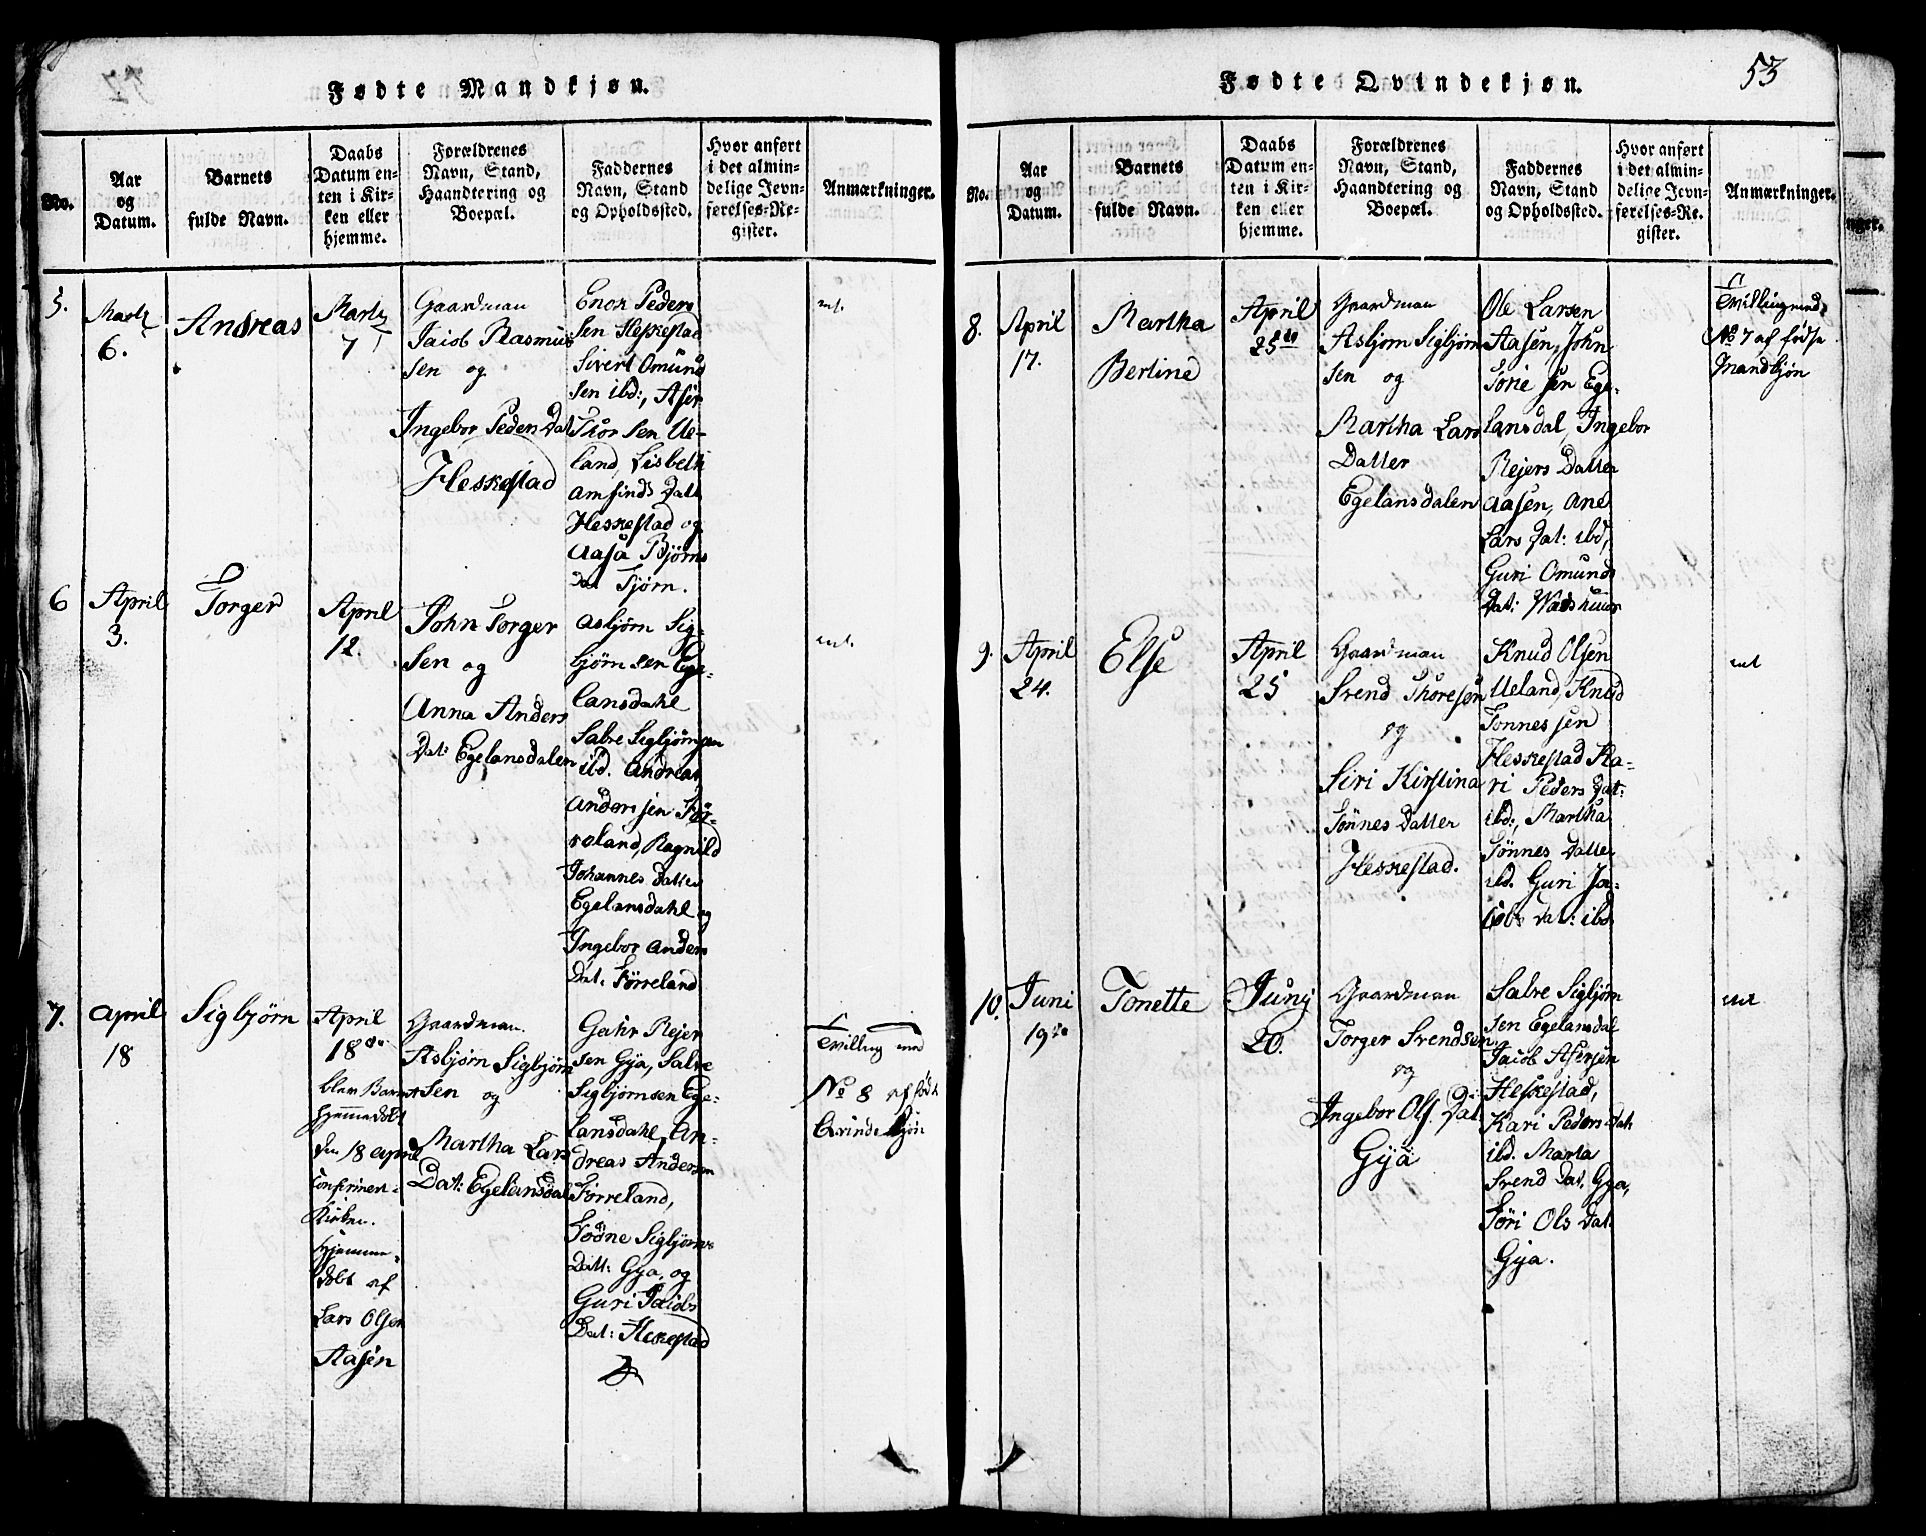 Fødte Mandkjøn.
No.
Aar
og
Datum.
Barnets
fulde Navn.
Daabs
Datum en-
ten i Kir-
ken eller
hjemme.
Forældrenes
Navn, Stand,
Haandtering og
Boepæl.
Faddernes
Navn, Stand
og Opholdssted.
Hvor anført
i det almin-
delige Jevn-
førelses-Re-
gister.
Anmærkninger.
5.
Marty
6.
Andreas
Marty
7
Gaardman
Jacob Rasmus
sen og
Ingebor Peders Dat
Heskestad
Enok Peder
sen Heskestad
Sivert Omund
sen ibd:, Aser
Thor sen Ue-
land, Lisbeth
Amsinds Datt
Heskestad og
Aasa Bjørns
Dat Tjørn.
int.
6
April
3.
Torger
April
12.
John Torger
sen og
Anna Anders
Dat: Egelansdalen
Asbjørn Sig-
bjørnsen Ege-
lansdahl
Salve Sigbjørnsen
ibd. Andreas
Anders sen Før-
roland, Ragnild
Johannes Datter
Egelansdahl og
Ingebor Anders
Dat. Førreland
int.
7.
April
18
Sigbjørn
April
18de
blev Barnet
hjemmedøbt
den 18 April
Confirmert i
Kirken.
Hjemme-
døbt af
Lars Olsen
Aasen
Gaardman
Asbjørn Sigbjørn
sen og
Martha Lars
Dat: Egelansdal
Gahr Rejer
sen Gya, Salve
Sigbjørnsen Ege-
lansdahl, An-
dreas Andersen
Førreland,
Sigbjørns
Datt: Gya, og
Guri Jacobs
Dat: Heskestad
Tvilling med
No 8 af født
Qvindekjøn
Fødte Qvindekjøn.
53
No.
Aar
og
Datum.
Barnets
fulde Navn.
Daabs
Datum en-
ten i Kir-
ken eller
hjemme.
Forældrenes
Navn, Stand,
Haandtering og
Boepæl.
Faddernes
Navn, Stand
og Opholdssted.
Hvor anført
i det almin-
delige Jevn-
førelses-Re-
gister.
Anmærkninger.
8.
April
17.
Martha
Berline
April
25de
Gaardman
Asbjørn Sigbjørn
sen og
Martha Lars
Datter
Egelansdalen
Ole Larsen
Aasen, John
Torje sen Ege-
lansdal, Ingebor
Rejers Datter
Aasen, Ane
Lars Dat: ibd,
Guri Omunds
Dat: Wadshuus
Tvilling med
No 7 af fødte
Mandkjøn
9.
April
24.
Else
April
25
Gaardman
Svend Thoresen
og
Siri Kirstina
Tønnes Datter
Heskestad.
Knud Olsen
Ueland, Knud
Tønnes sen
Heskestad Ka-
ri Peders Dat:
ibd:, Martha
Tønnes Datter
ibd. Guri Ja-
cobs Dat: ibd.
int
10.
Juni
19de
Tonette
Junj
20.
Gaardman
Torger Svendsen
og
Ingebor Ols Dat.
Gya
Salve Sigbjørn
sen Egelansdal
Jacob Asersen
Heskestad,
Kari Peders Dat
ibd. Marta
Svend Dat. Gya,
Siri Ols Dat.
Gya.
int
nger.